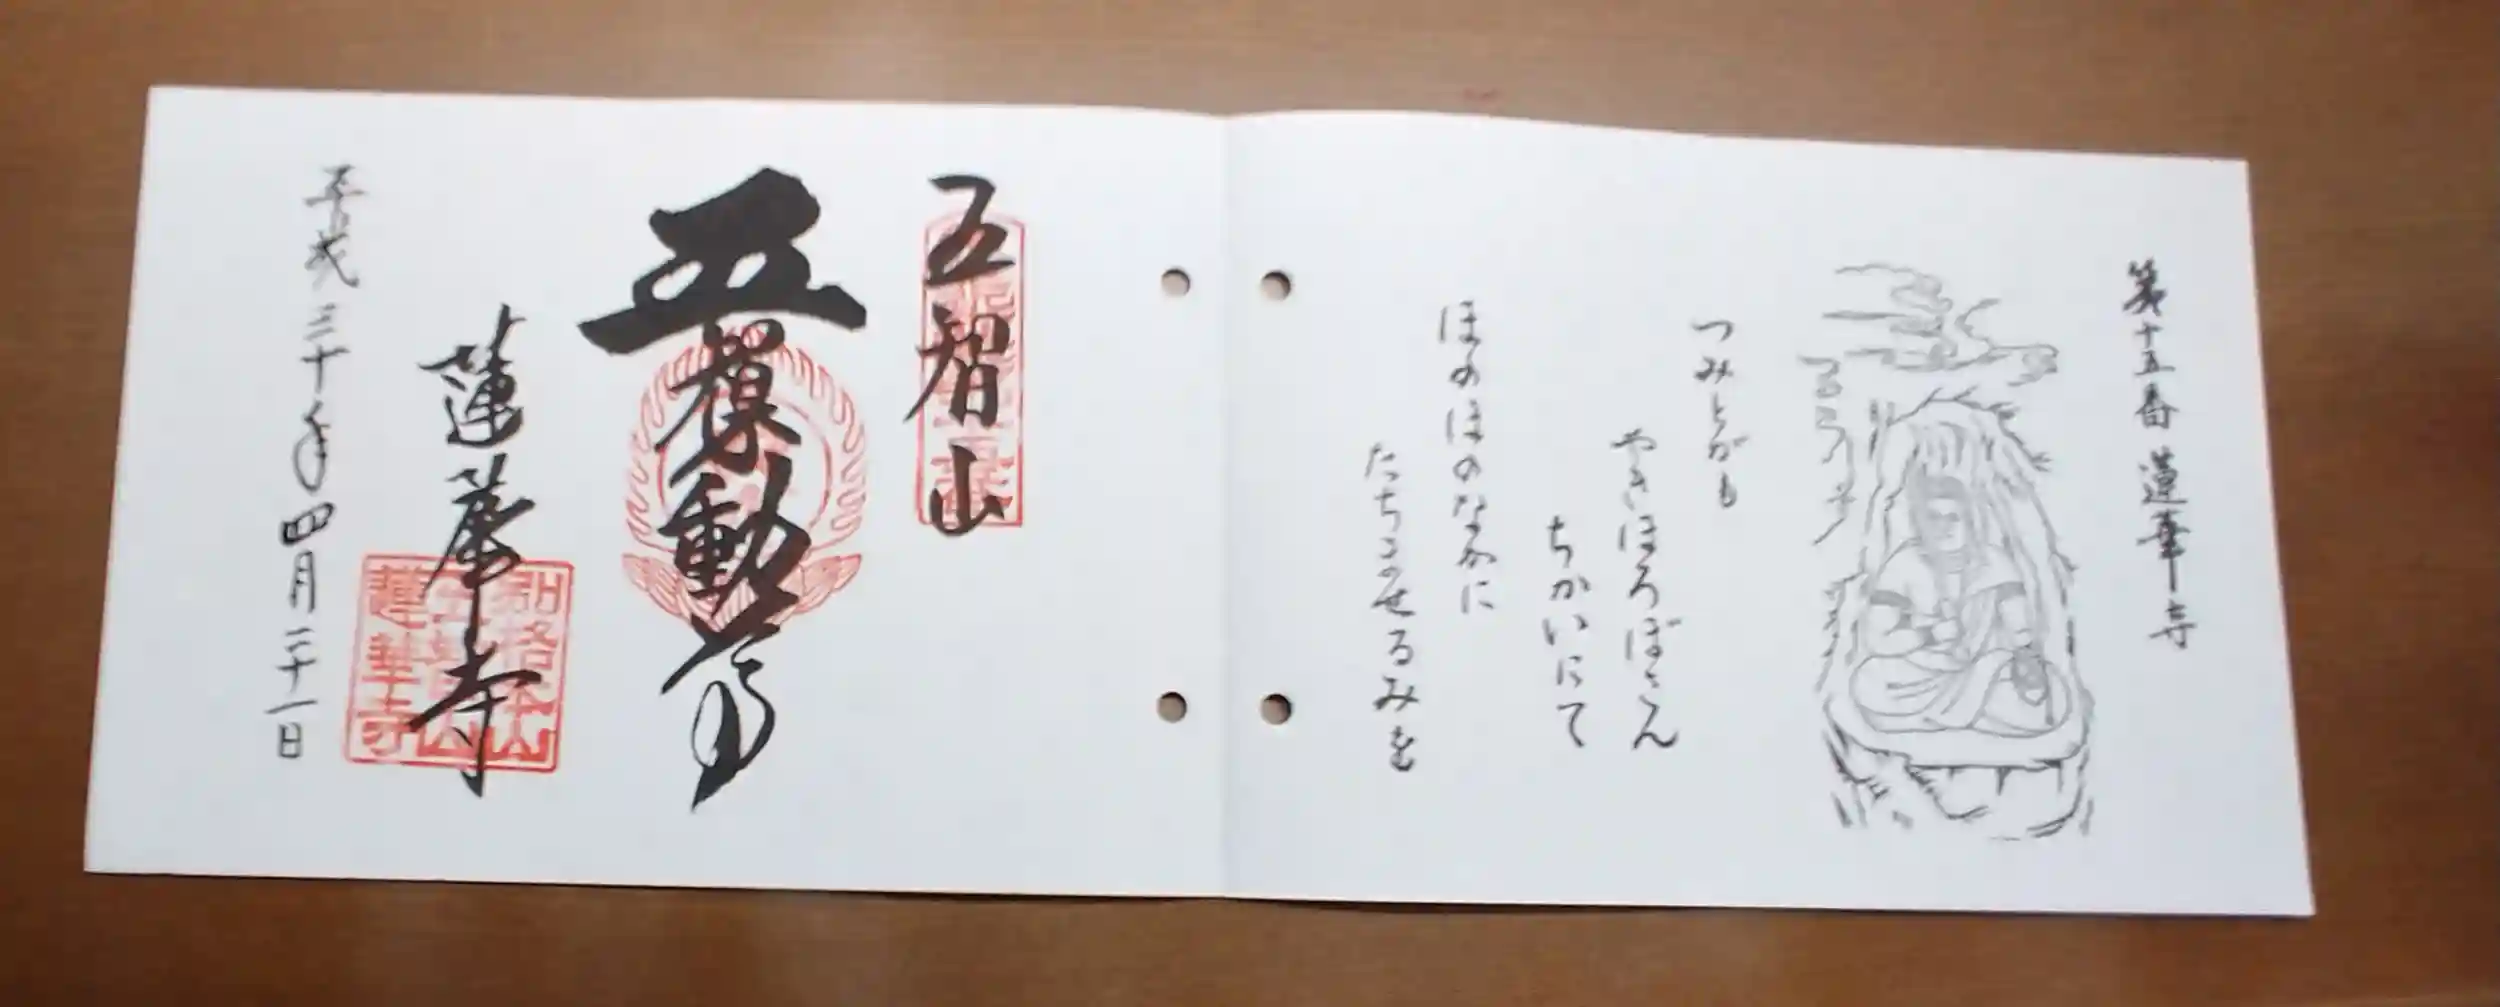 第十五番 蓮華寺
つみとがも
やきほろぼさん
ちかいにて
ほのほのなかに
たちませるみを
五智山
五智不動尊
蓮華寺
平成三十年四月二十一日
別格本山
五智山
蓮華寺